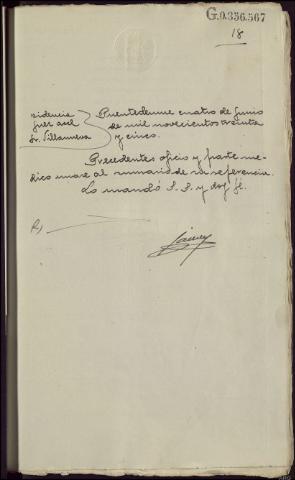 G.0.356.567
18
videncia
Juez acd
Sr. Villanueva
Puentedeume cuatro de Junio
de mil novecientos treinta
y cinco.
Precedentes oficio y parte me-
dico unase al sumario de su referencia.
Lo mandó S. S. y doy fé.